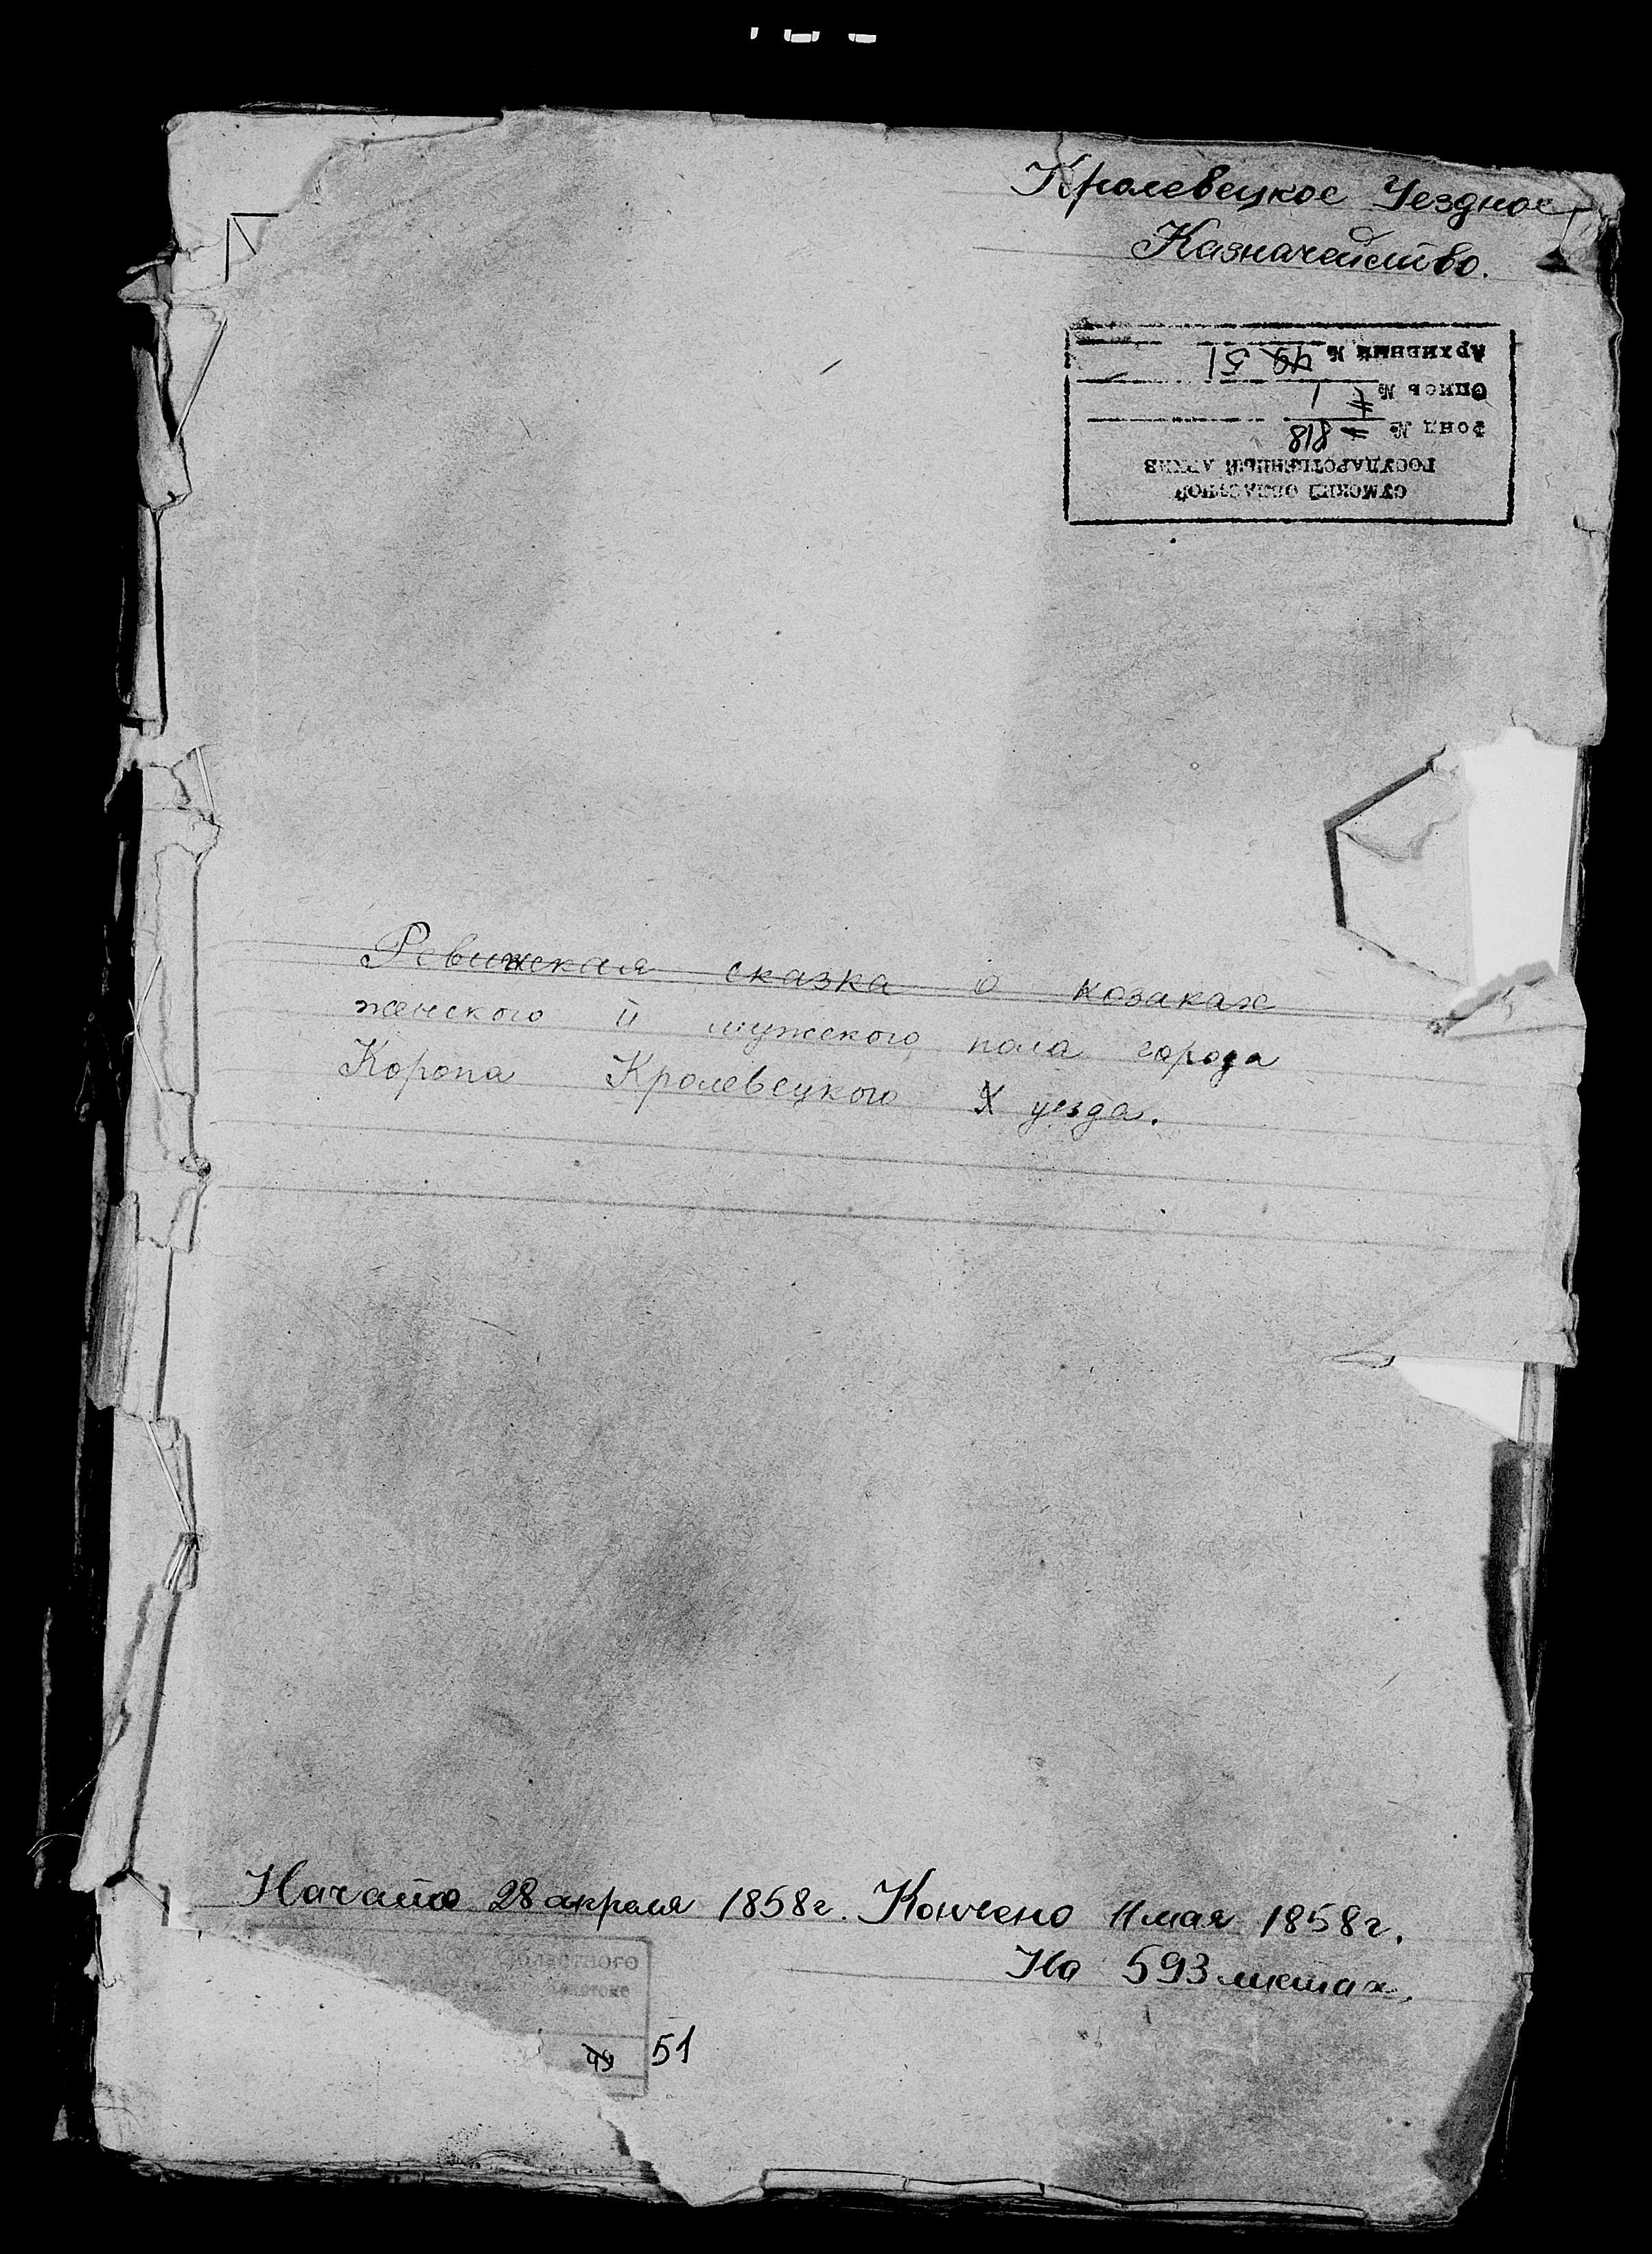 Кролевецкое Уездное
Казначейство.
СУМСКИЙ ОБЛАСТНОЙ
ГОСУДАРСТВЕННЫЙ АРХИВ
Фонд № 818
Опись № 1
Архивный № 49 51
Ревижская сказка о козаках
женского и мужского пола города
Коропа Кролевецкого X уезда.
Начато 28 апреля 1858г. Кончено 11 мая 1858г.
На 593 листах.
Областного
49 51